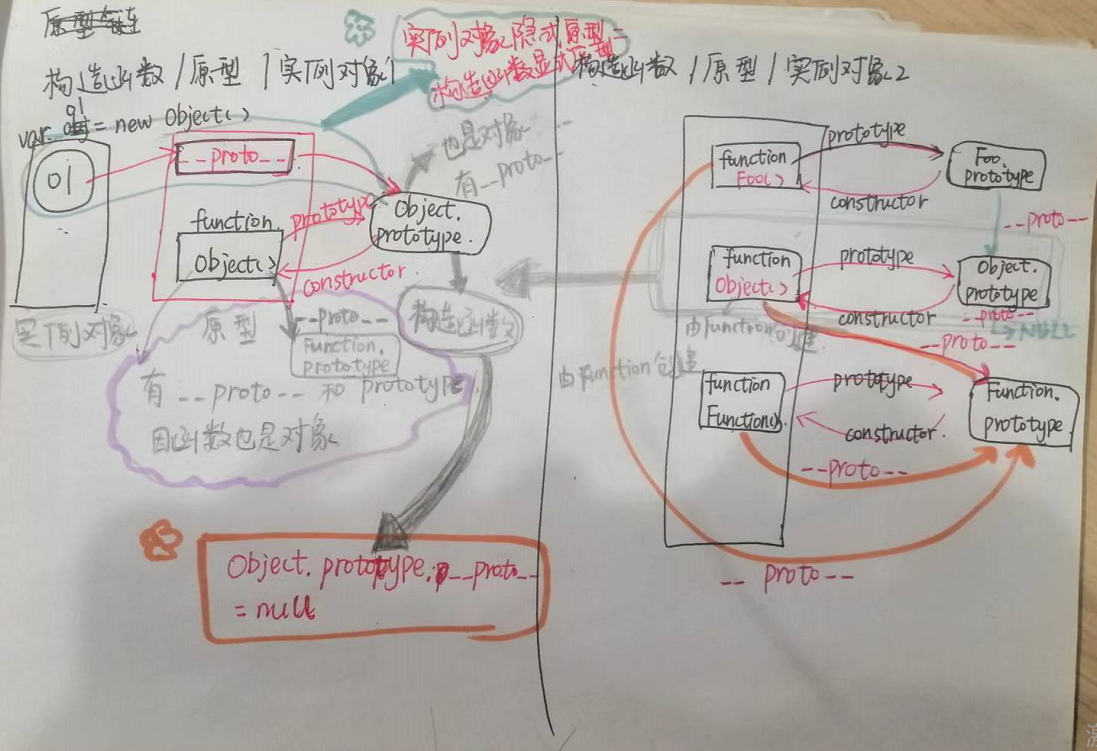 原型链
实例对象隐式原型=
构造函数显式原型
构造函数/原型/实例对象1
var o1 = new Object()
o1
__proto__
function
Object()
prototype
constructor
Object.
prototype
也是对象
有__proto__
实例对象
原型
__proto__
Function.
prototype
构造函数
有__proto__和prototype
因函数也是对象
Object.prototype.__proto__
=null
构造函数/原型/实例对象2
function
Foo()
prototype
constructor
Foo.
prototype
__proto__
function
Object()
prototype
constructor
Object.
prototype
__proto__
NULL
由function创建
__proto__
由Function创建
function
Function()
prototype
constructor
Function.
prototype
__proto__
__proto__